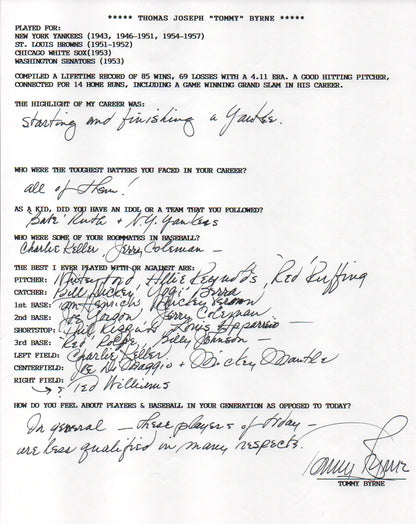 ***** THOMAS JOSEPH "TOMMY" BYRNE *****
PLAYED FOR:
NEW YORK YANKEES (1943, 1946-1951, 1954-1957)
ST. LOUIS BROWNS (1951-1952)
CHICAGO WHITE SOX(1953)
WASHINGTON SENATORS (1953)
COMPILED A LIFETIME RECORD OF 85 WINS, 69 LOSSES WITH A 4.11 ERA. A GOOD HITTING PITCHER,
CONNECTED FOR 14 HOME RUNS, INCLUDING A GAME WINNING GRAND SLAM IN HIS CAREER.
THE HIGHLIGHT OF MY CAREER WAS:
Starting and finishing a Yankee.
WHO WERE THE TOUGHEST BATTERS YOU FACED IN YOUR CAREER?
all of them!
AS A KID, DID YOU HAVE AN IDOL OR A TEAM THAT YOU FOLLOWED?
"Babe" Ruth + N.Y. Yankees
WHO WERE SOME OF YOUR ROOMMATES IN BASEBALL?
Charlie Keller - Jerry Coleman -
THE BEST I EVER PLAYED WITH OR AGAINST ARE:
PITCHER: Whitey Ford, Allie Reynolds, "Red" Ruffing
CATCHER: Bill Dickey, "Yogi" Berra
1st BASE: Tom Henrich, Mickey Vernon
2nd BASE: Joe Gordon, Jerry Coleman
SHORTSTOP: Phil Rizzuto, Louis Apparisio -
3rd BASE: "Red" Rolfe, Billy Johnson -
LEFT FIELD: Charlie Keller
CENTERFIELD: Joe DiMaggio + Mickey Mantle
RIGHT FIELD: Ted Williams
HOW DO YOU FEEL ABOUT PLAYERS & BASEBALL IN YOUR GENERATION AS OPPOSED TO TODAY?
In general - these players of today -
are less qualified in many respects.
Tommy Byrne
TOMMY BYRNE